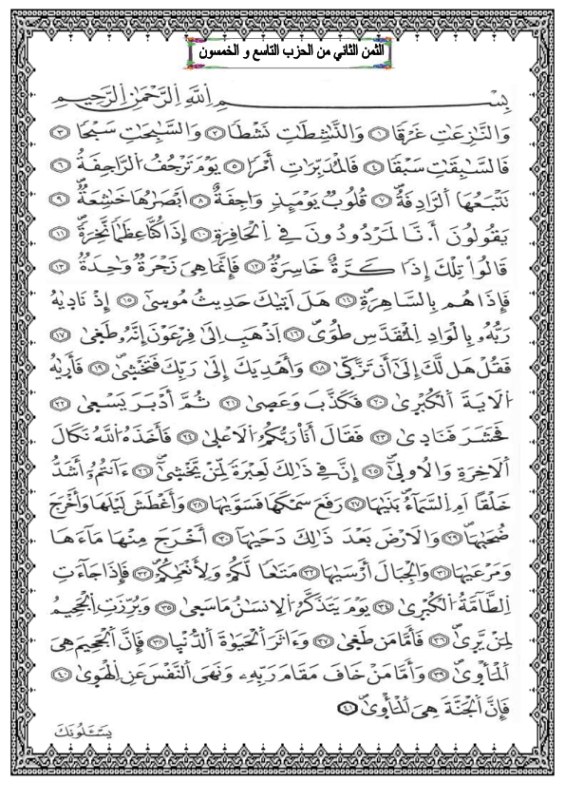 الثمن الثاني من الحزب التاسع و الخمسون
بِسْمِ اِللَّهِ اِلرَّحْمَٰنِ اِلرَّحِيمِ
وَالنَّٰزِعَٰتِ غَرْقاً ١ وَالنَّٰشِطَٰتِ نَشْطاً ٢ وَالسَّٰبِحَٰتِ سَبْحاً ٣
فَالسَّٰبِقَٰتِ سَبْقاً ٤ فَالْمُدَبِّرَٰتِ أَمْراً ٥ يَوْمَ تَرْجُفُ اُلرَّاجِفَةُ ٦
تَتْبَعُهَا اَلرَّادِفَةُ ٧ قُلُوبٌ يَوْمَئِذٍ وَاجِفَةٌ ٨ اَبْصَٰرُهَا خَٰشِعَةٌ ٩
يَقُولُونَ أَ.نَّا لَمَرْدُودُونَ فِے اِلْحَافِرَةِ ١٠ إِذَا كُنَّا عِظَٰماً نَّخِرَةً ١١
قَالُواْ تِلْكَ إِذاً كَرَّةٌ خَاسِرَةٌ ١٢ فَإِنَّمَا هِىَ زَجْرَةٌ وَٰحِدَةٌ ١٣
فَإِذَا هُم بِالسَّاهِرَةِ ١٤ هَلَ اَتَيٰكَ حَدِيثُ مُوسَىٰ ١٥ إِذْ نَادَيٰهُ
رَبُّهُۥ بِالْوَادِ اِلْمُقَدَّسِ طُوَىٰ ١٦ اَذْهَبِ اِلَىٰ فِرْعَوْنَ إِنَّهُۥ طَغَىٰ ١٧
فَقُلْ هَل لَّكَ إِلَىٰ أَن تَزَّكَّىٰ ١٨ وَأَهْدِيَكَ إِلَىٰ رَبِّكَ فَتَخْشَىٰ ١٩ فَأَرَيٰهُ
اُلَايَةَ اَلْكُبْرَىٰ ٢٠ فَكَذَّبَ وَعَصَىٰ ٢١ ثُمَّ أَدْبَرَ يَسْعَىٰ ٢٢
فَحَشَرَ فَنَادَىٰ ٢٣ فَقَالَ أَنَا رَبُّكُمُ اُلَاعْلَىٰ ٢٤ فَأَخَذَهُ اُللَّهُ نَكَالَ
اَلَاخِرَةِ وَالُاولَىٰ ٢٥ إِنَّ فِے ذَٰلِكَ لَعِبْرَةً لِّمَنْ يَّخْشَىٰ ٢٦ ءَآنتُمُۥٓ أَشَدُّ
خَلْقاً اَمِ اِلسَّمَآءُ بَنَيٰهَا ٢٧ رَفَعَ سَمْكَهَا فَسَوَّيٰهَا ٢٨ وَأَغْطَشَ لَيْلَهَا وَأَخْرَجَ
ضُحَيٰهَا ٢٩ وَالَارْضَ بَعْدَ ذَٰلِكَ دَحَيٰهَا ٣٠ أَخْرَجَ مِنْهَا مَآءَهَا
وَمَرْعَيٰهَا ٣١ وَالْجِبَالَ أَرْسَيٰهَا ٣٢ مَتَٰعاً لَّكُمْ وَلِأَنْعَٰمِكُمْ ٣٣ فَإِذَا جَآءَتِ
اِلطَّآمَّةُ اُلْكُبْرَىٰ ٣٤ يَوْمَ يَتَذَكَّرُ اُلِانسَٰنُ مَا سَعَىٰ ٣٥ وَبُرِّزَتِ اِلْجَحِيمُ
لِمَنْ يَّرَىٰ ٣٦ فَأَمَّا مَن طَغَىٰ ٣٧ وَءَاثَرَ اَلْحَيَوٰةَ اَلدُّنْيَا ٣٨ فَإِنَّ اَلْجَحِيمَ هِىَ
اَلْمَأْوَىٰ ٣٩ وَأَمَّا مَنْ خَافَ مَقَامَ رَبِّهِۦ وَنَهَى اَلنَّفْسَ عَنِ اِلْهَوَىٰ ٤٠
فَإِنَّ اَلْجَنَّةَ هِىَ اَلْمَأْوَىٰ ٤١
يَسْـَٔلُونَكَ